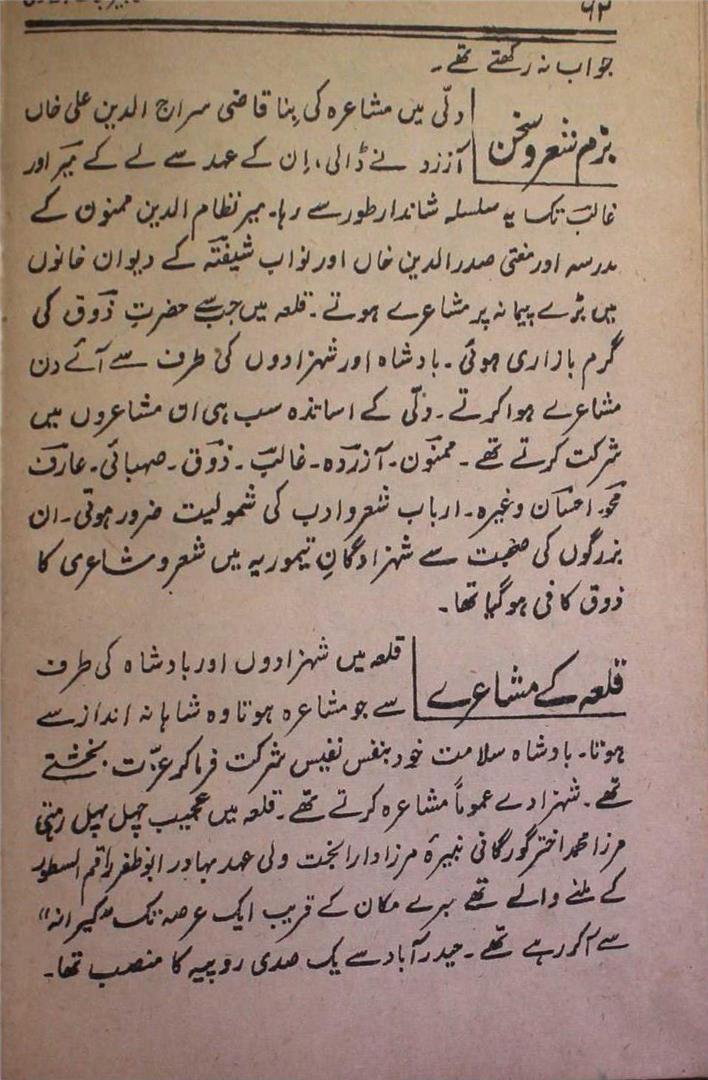 ۹۲
جواب نہ رکھتے تھے۔
بزم شعر و سخن
دلّی میں مشاعرہ کی بِنا قاضی سراج الدین علی خاں
آرزد نے ڈالی، اِن کے عہد سے لے کے میر اور
غالب تک یہ سلسلہ شاندار طور سے رہا۔ میر نظام الدین ممنون کے
مدرسہ اور مفتی صدر الدین خاں اور نواب شیفتہ کے دیوان خانوں
میں بڑے پیمانہ پر مشاعرے ہوتے۔ قلعہ میں جب سے حضرتِ ذوق کی
گرم بازاری ہوئی۔ بادشاہ اور شہزادوں کی طرف سے آئے دن
مشاعرے ہوا کرتے۔ دلّی کے اساتذہ سب ہی ان مشاعروں میں
شرکت کرتے تھے۔ ممنون۔ آزردہ۔ غالب۔ ذوق۔ صہبائی۔ عارف
محو۔ احسان وغیرہ۔ ارباب شعر و ادب کی شمولیت ضرور ہوتی۔ ان
بزرگوں کی صحبت سے شہزادگانِ تیموریہ میں شعر و شاعری کا
ذوق کافی ہو گیا تھا۔
قلعہ کے مشاعرے
قلعہ میں شہزادوں اور بادشاہ کی طرف
سے جو مشاعرہ ہوتا وہ شاہانہ انداز سے
ہوتا۔ بادشاہ سلامت خود بنفس نفیس شرکت فرما کر عزّت بخشتے
تھے۔ شہزادے عموماً مشاعرہ کرتے تھے۔ قلعہ میں عجیب چہل پہل رہتی
مرزا محمد اختر گورگانی نبیرۂ مرزا دارا بخت ولی عہد بہادر ابو ظفر راقم السطور
کے ملنے والے تھے میرے مکان کے قریب ایک عرصہ تک "کیرانہ"
سے آکر رہے تھے۔ حیدرآباد سے یک صدی روپیہ کا منصب تھا۔